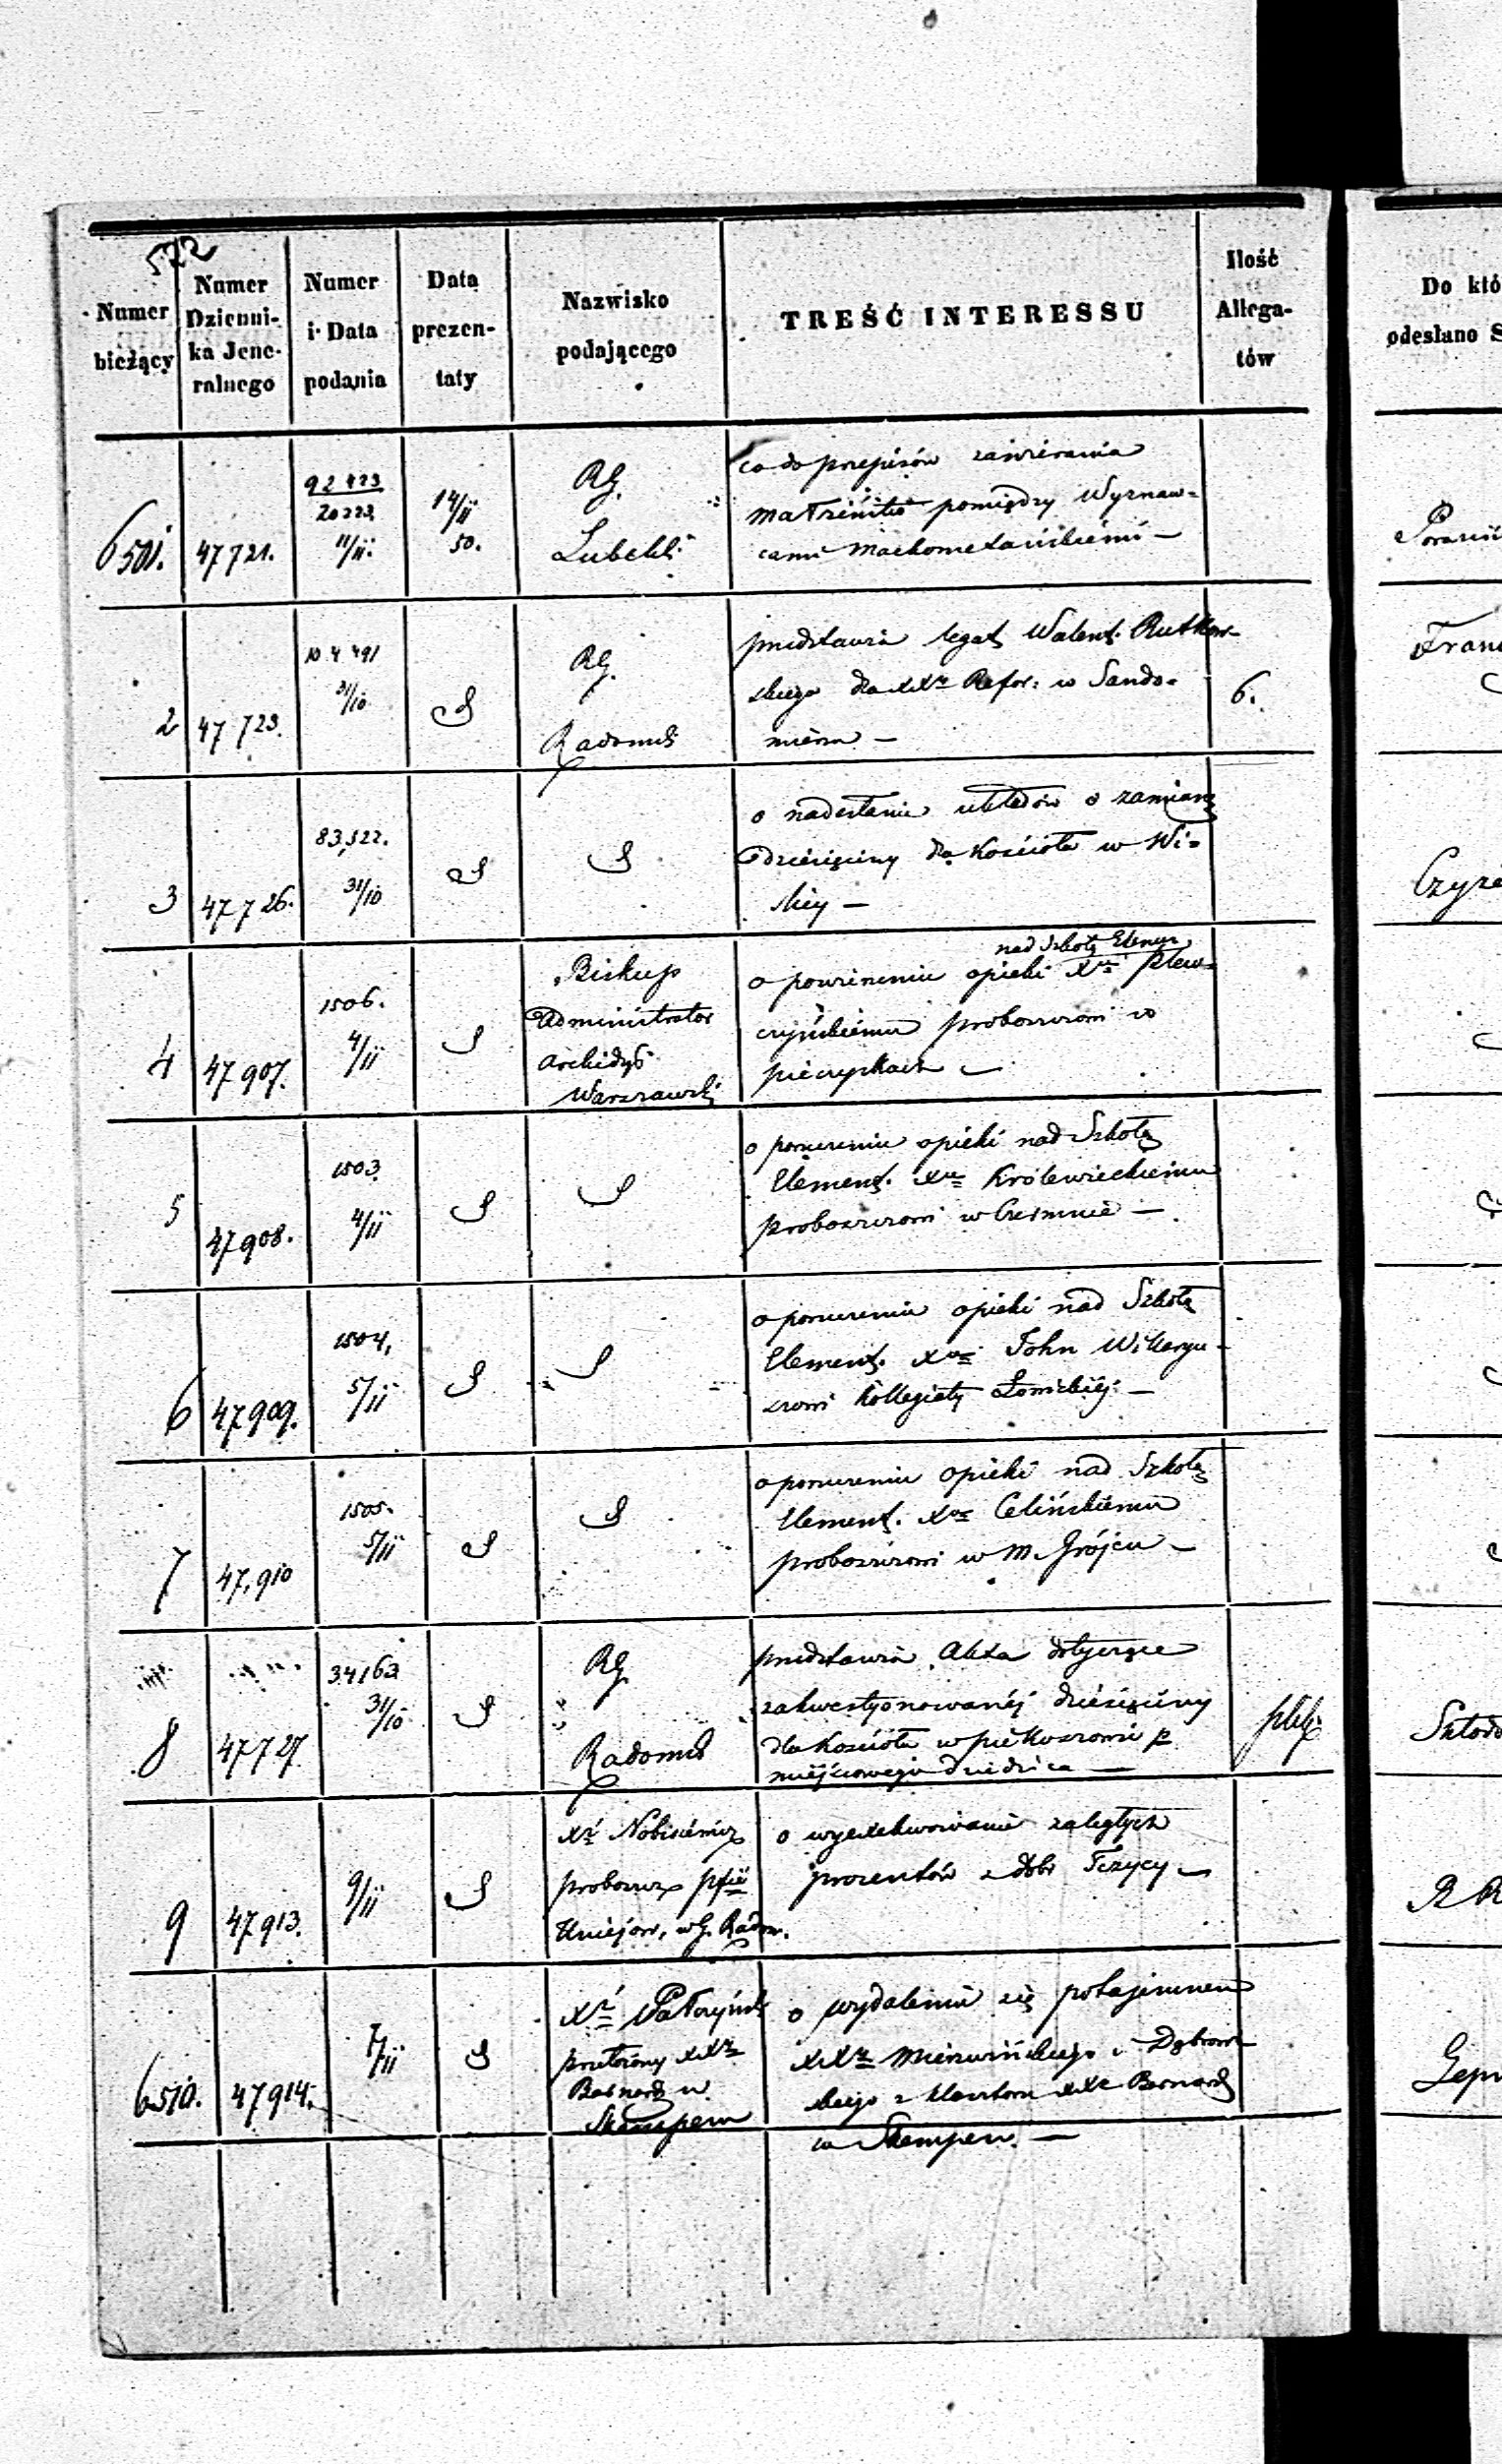 572
Numer bieżący
Numer Dzienni-ka Jene-ralnego
Numer i Data podania
Data prezen-taty
Nazwisko podającego
TREŚĆ INTERESSU
Ilość Allega-tów
Do któ
odesłano S
6501. 47721. 92423 20223 11/11. 14/11 50. RG. Lubelski
co do przepisów zawierania
małżeństw pomiędzy Wyznaw=
cami Machometańskiémi —
2 47723. 104491 31/10 RG. Radomski
przedstawia legat Walent. Rutkow-
skiego dla XXw Refor: w Sando=
mierzu —
6.
3 47726. 83,522. 31/10
o nadesłanie układów o zamianę
dziesięciny dla Kościoła w Wi=
ślicy —
4 47907. 1506. 4/11 Biskup
Administrator
Archidyb
Warszawski
nad Szkołą Elemen
o powierzeniu opieki Xu
czyńskiemu proboszczowi w
5 47908. 1503. 4/11
o powierzeniu opieki nad Szkołą
Element. Xu Królewieckiemu
proboszczowi w Czermnie —
6 47909. 1504. 5/11
o powierzeniu opieki nad Szkołą
Element. Xu John Wikaryu-
szowi Kollegiaty Łowickiéj —
7 47,910 1505. 5/11
o powierzeniu opieki nad Szkołą
Element. Xu Celińskiemu
proboszczowi w M. Grójcu —
8 47727 34163 31/10 RG Radomski
przedstawia Akta dotyczące
zakwestyonowanéj dziesięciny
dla Kościoła w Piekoszowie p
miejscowego dziedzica —
9 47913. 9/11 Xdz
proboszcz pfii
Uniejow. w G. Radom.
o wyexekwowanie zaległych
procentów z dóbr Tczycy —
6510. 47914. 7/11 Xdz
przełożony XXw
Bernard w
Skempem
o wydaleniu się potajemnem
XXw i Dąbrow
skiego z klasztoru XXw Bernard
w Skempem. —